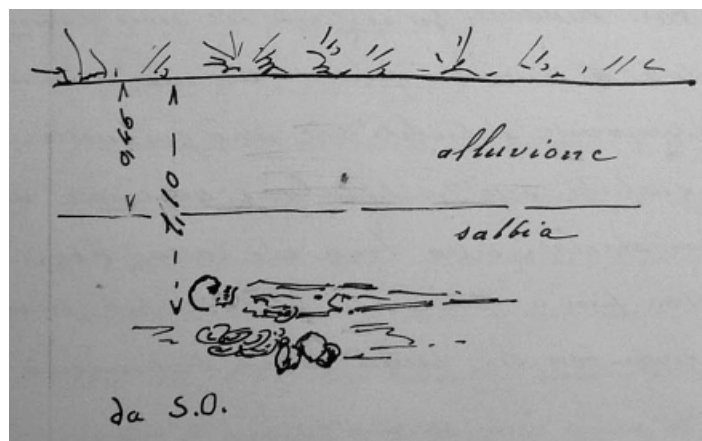 1,10
alluvione
sabbia
da S.O.